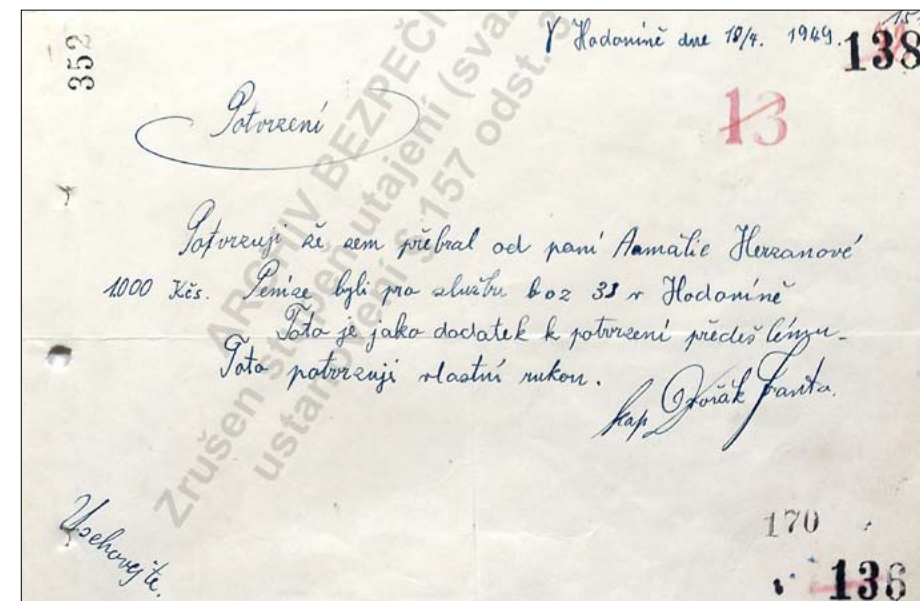 352
V Hodoníně dne 18/4. 1949.
15.
138
13
Potvrzení
Potvrzuji že sem přebral od paní Aamálie Herzanové
1000 Kčs. Peníze byli pro službu boz 33 v Hodoníně
Toto je jako dodatek k potvrzení předešlému.
Toto potvrzuji vlastní rukou.
kap Dvořák Franta.
Uschovejte.
170
136
ARCHIV BEZPEČ
Zrušen stupeň utajení (svaz
ustanovení § 157 odst. 3